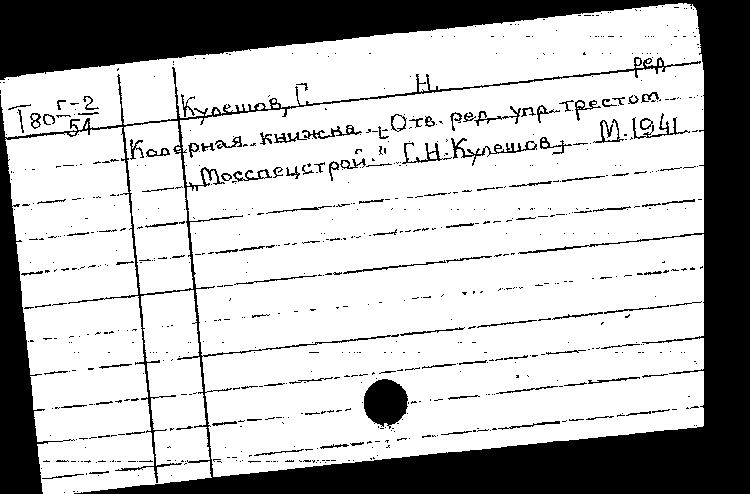 Т80 Г-2/54
Кулешов, Г. Н. ред
Колерная книжка. [Отв. ред. упр. трестом
„Мосспецстрой." Г.Н. Кулешов] М. 1941